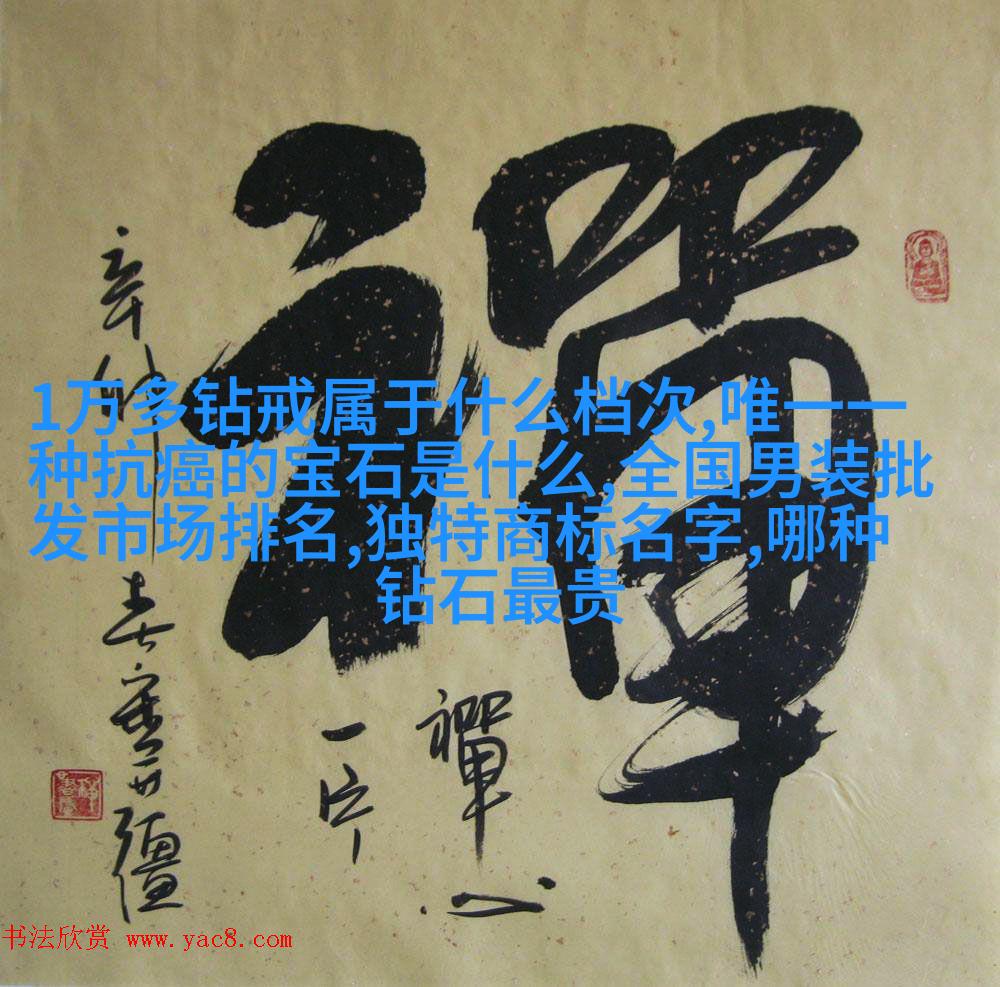 禪
1万多钻戒属于什么档次,唯一一
种抗癌的宝石是什么,全国男装批
发市场排名,独特商标名字,哪种
钻石最贵
禪心
一片
辛卯春
书法欣赏 www.yac8.com